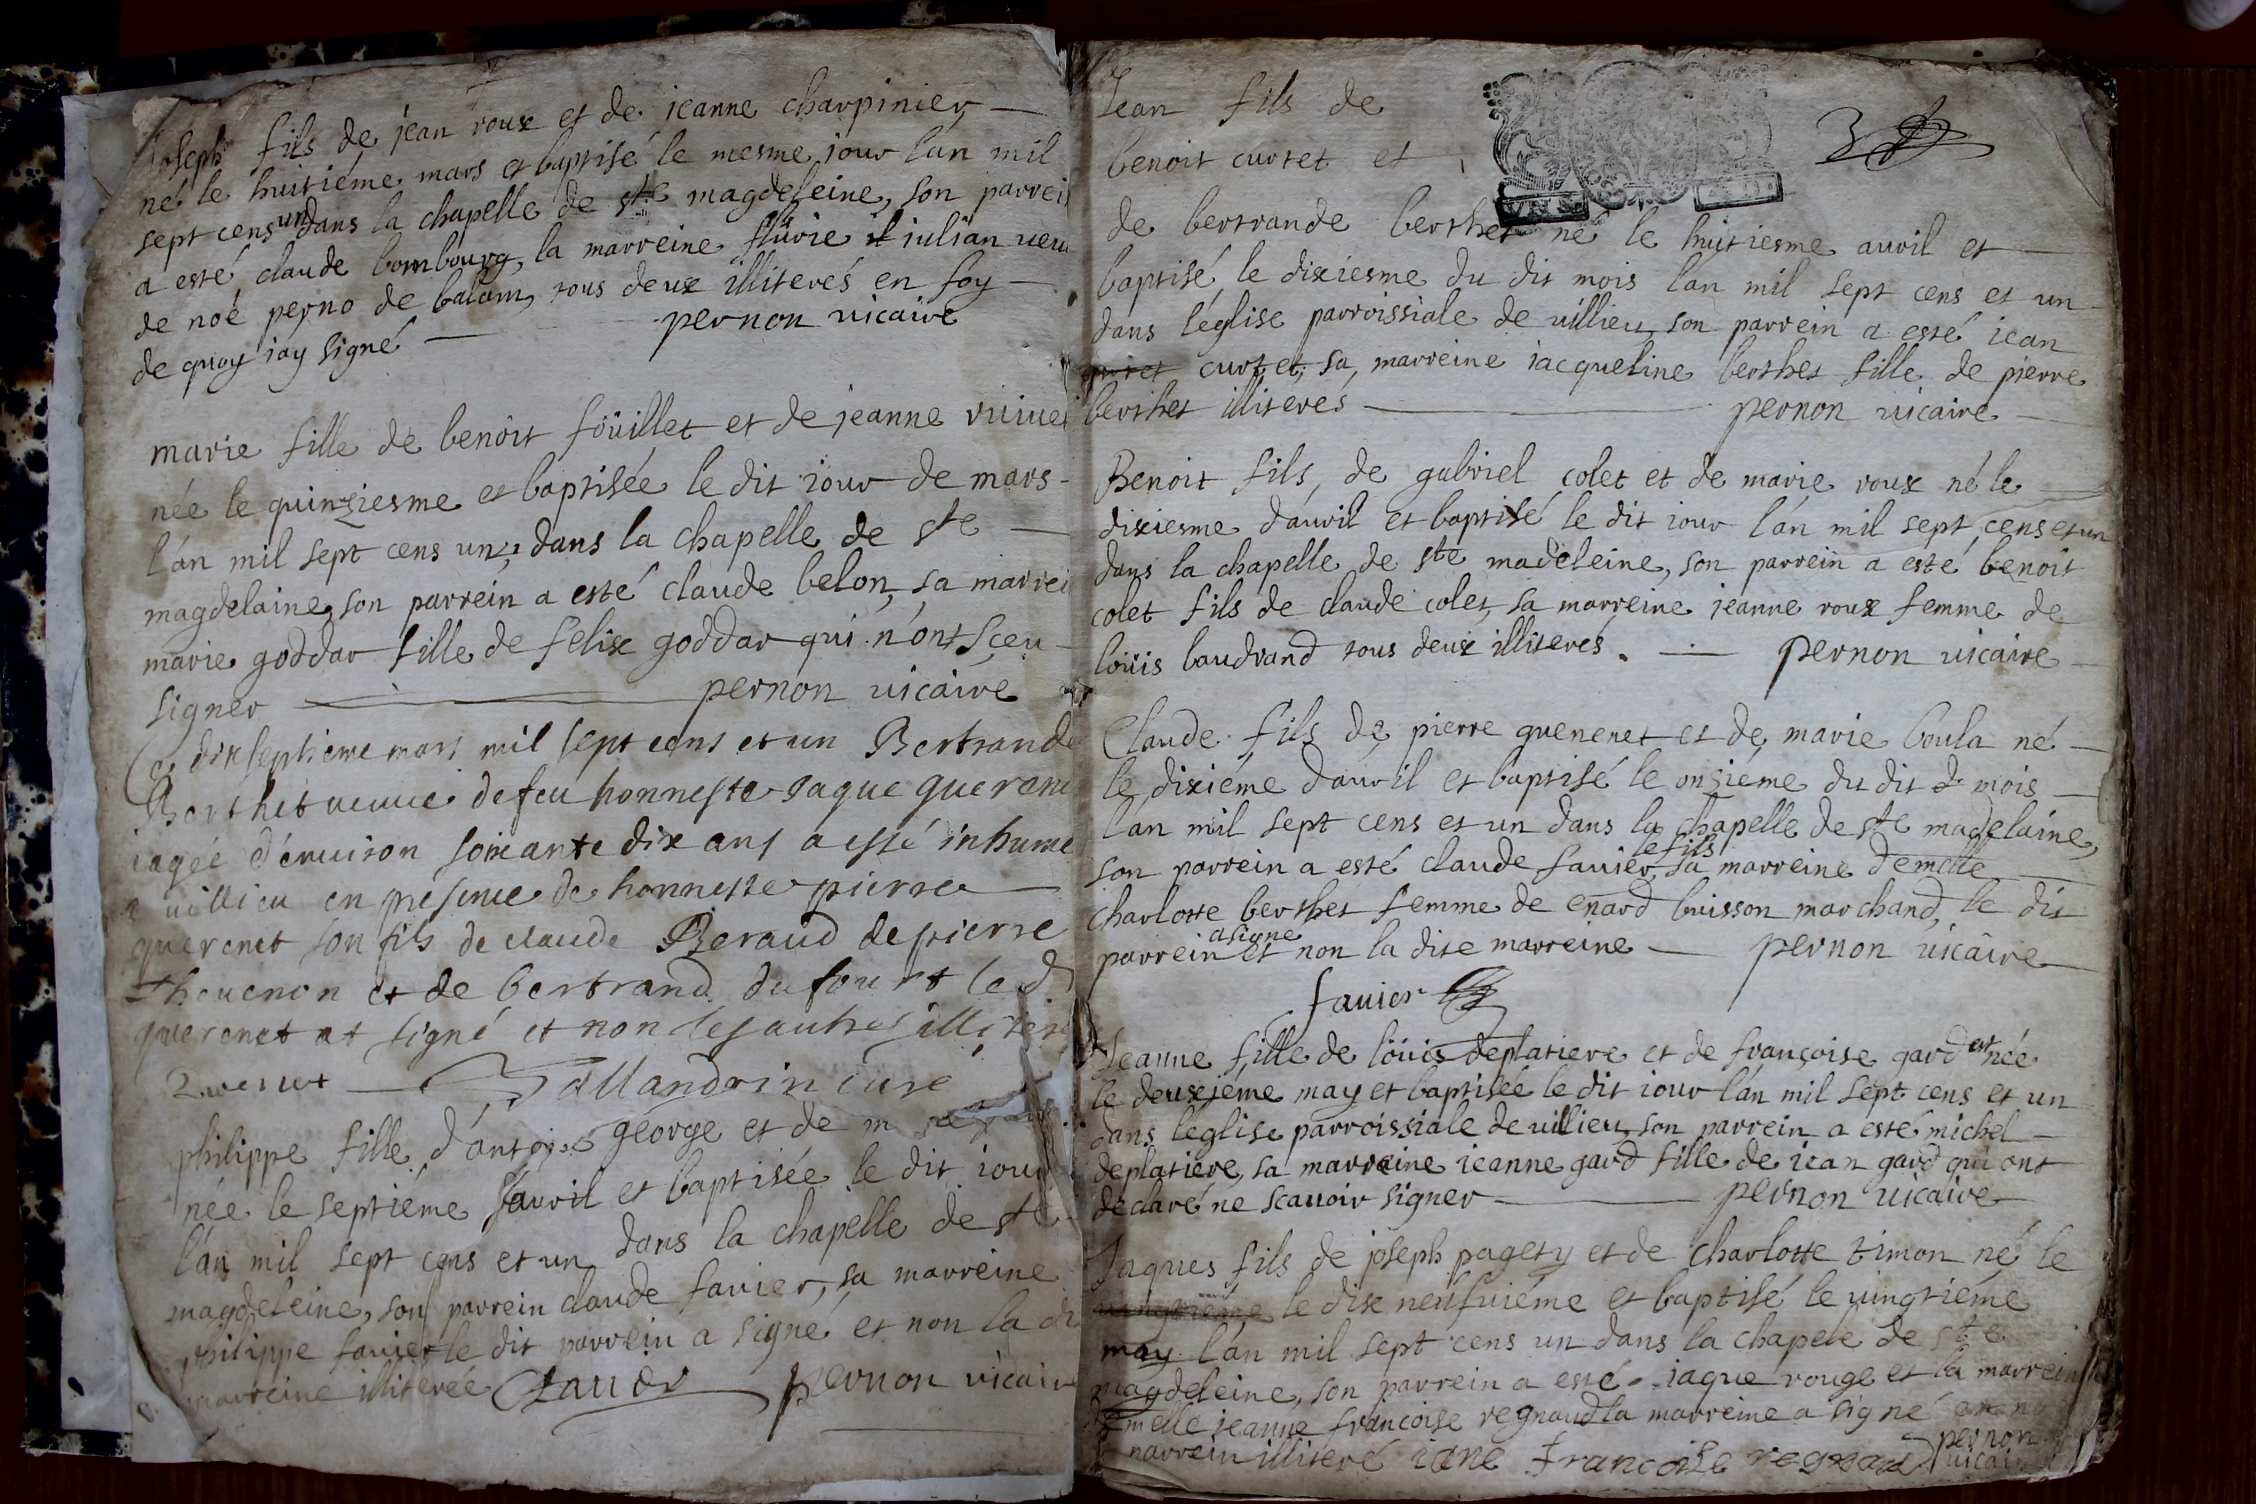 Joseph fils de jean roux et de jeanne charpinier
né le huitiéme mars et baptisé le mesme iour l'án mil
sept cens un dans la chapelle de ste magdeleine, son parrei
a esté claude bombourg, la marreine flurie iulian veu
de noé perno de balam, tous deux illiterés en foy
de quoy iay signé pernon vicaire
marie fille de benoit foüillet et de jeanne
née le quinziesme et baptisée le dit iour de mars
l'án mil sept cens un, dans la chapelle de ste
magdelaine, son parrein a esté claude belon, sa marrei
marie goddar fille de felix goddar qui n'ont sçeu
signer pernon vicaire
Ce dixseptieme mars mil sept cens et un Bertrande
Berthet veuve de feu honneste Jaque querene
agée d'environ soixante dix ans a esté inhume
a villieu en presence de honneste pierre
querenet son fils de claude Beraud de pierre
thevenon et de bertrand dufour et le d
querenet at signé et non les autres illitere
Querenet allandrin curé
philippe fille d'antoine géorge et de
née le septiéme d'avril et baptisée le dit iour
l'án mil sept cens et un dans la chapelle de ste
magdeleine, son parrein claude favier, sa marreine
philippe favier le dit parrein a signé et non la di
marreine illiterée pernon vicaire
3
Jean fils de
benoit curtet et
de bertrande berthet né le huitiesme avril et
baptisé le dixiesme du dit mois l'an mil sept cens et un
dans l'église parroissiale de villieu, son parrein a esté iean
curtet, sa marreine iacqueline berthet fille de pierre
berthet illiteres pernon vicaire
Benoit fils de gabriel colet et de marie roux né le
dixiesme d'avril et baptisé le dit iour l'án mil sept cens et un
dans la chapelle de ste madeleine, son parrein a esté benoit
colet fils de claude colet, sa marreine jeanne roux femme de
loüis baudrand tous deux illiterés. pernon vicaire
Claude fils de pierre quenenet et de marie boula né
le dixiéme d'avril et baptisé le onziéme du dit mois
l'án mil sept cens et un dans la chapelle de ste madelaine,
son parrein a esté claude favier le fils, sa marreine demelle
charlotte berthet femme de enard buisson marchand, le dit
parrein a signé et non la dite marreine pernon vicaire
favier
Jeanne fille de loüis deplatiere et de françoise gard est née
le deuxiéme may et baptisée le dit iour l'án mil sept cens et un
dans l'église parroissiale de villieu, son parrein a esté michel
deplatiere, sa marraine ieanne gard fille de iean gard qui ont
declaré ne scavoir signer pernon vicaire
Jaques fils de joseph pagety et de charlotte timon né le
vingtiéme le dix neufviéme et baptisé le vingtiéme
may l'án mil sept cens un dans la chapele de ste
magdeleine, son parrein a esté iaque rouge et la marrein
demelle jeanne francoise regnaud la marreine a signé
parrein illiteré iane francoise regnaud pernon
vicaire